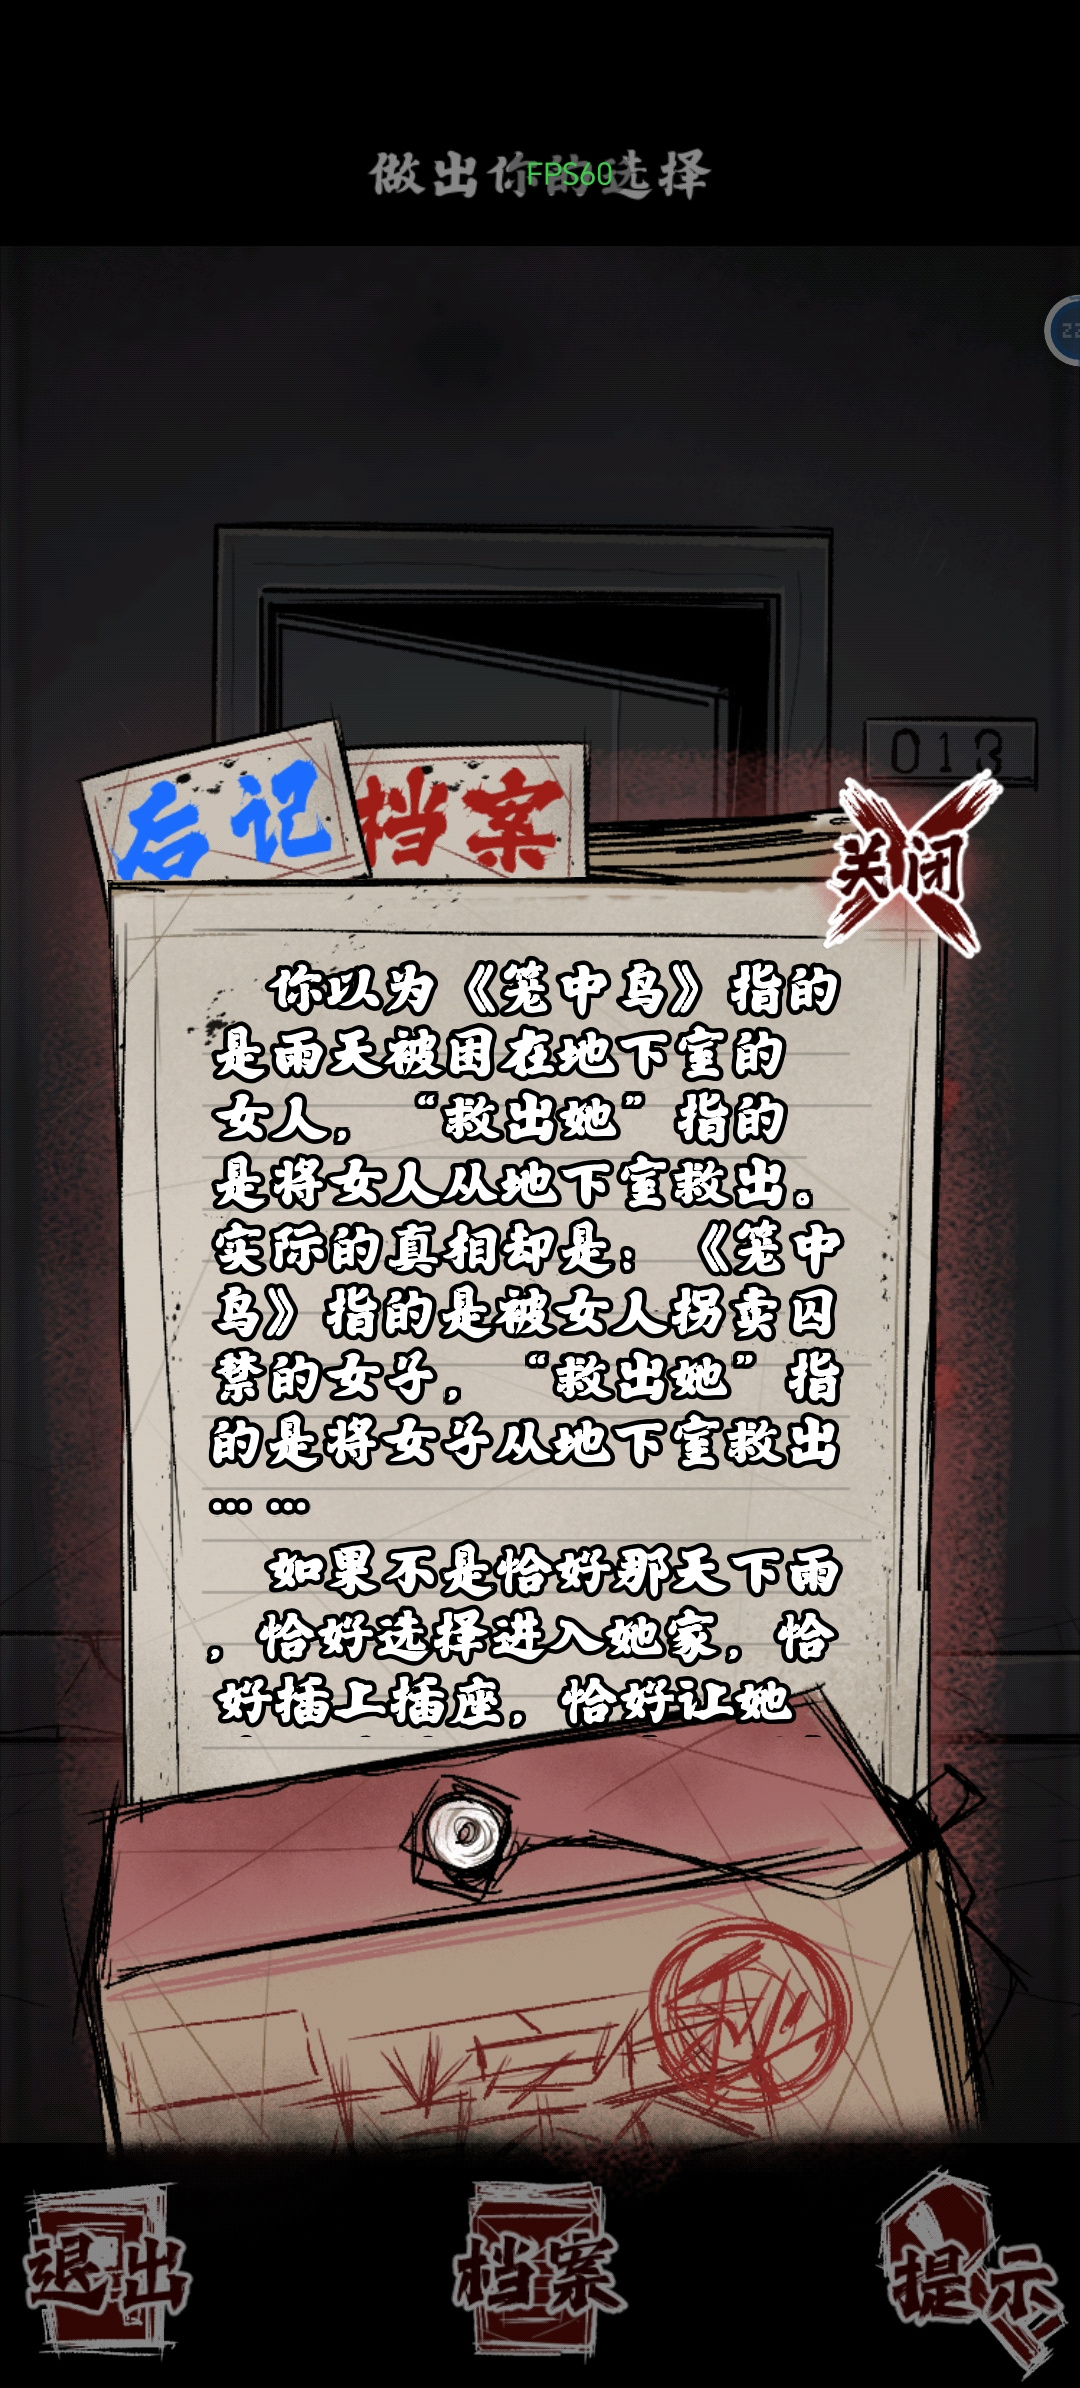 做出你的选择
FPS60
22
013
后记
档案
关闭
你以为《笼中鸟》指的
是雨天被困在地下室的
女人，“救出她”指的
是将女人从地下室救出。
实际的真相却是：《笼中
鸟》指的是被女人拐卖囚
禁的女子，“救出她”指
的是将女子从地下室救出
… …
如果不是恰好那天下雨
，恰好选择进入她家，恰
好插上插座，恰好让她
退出
档案
提示